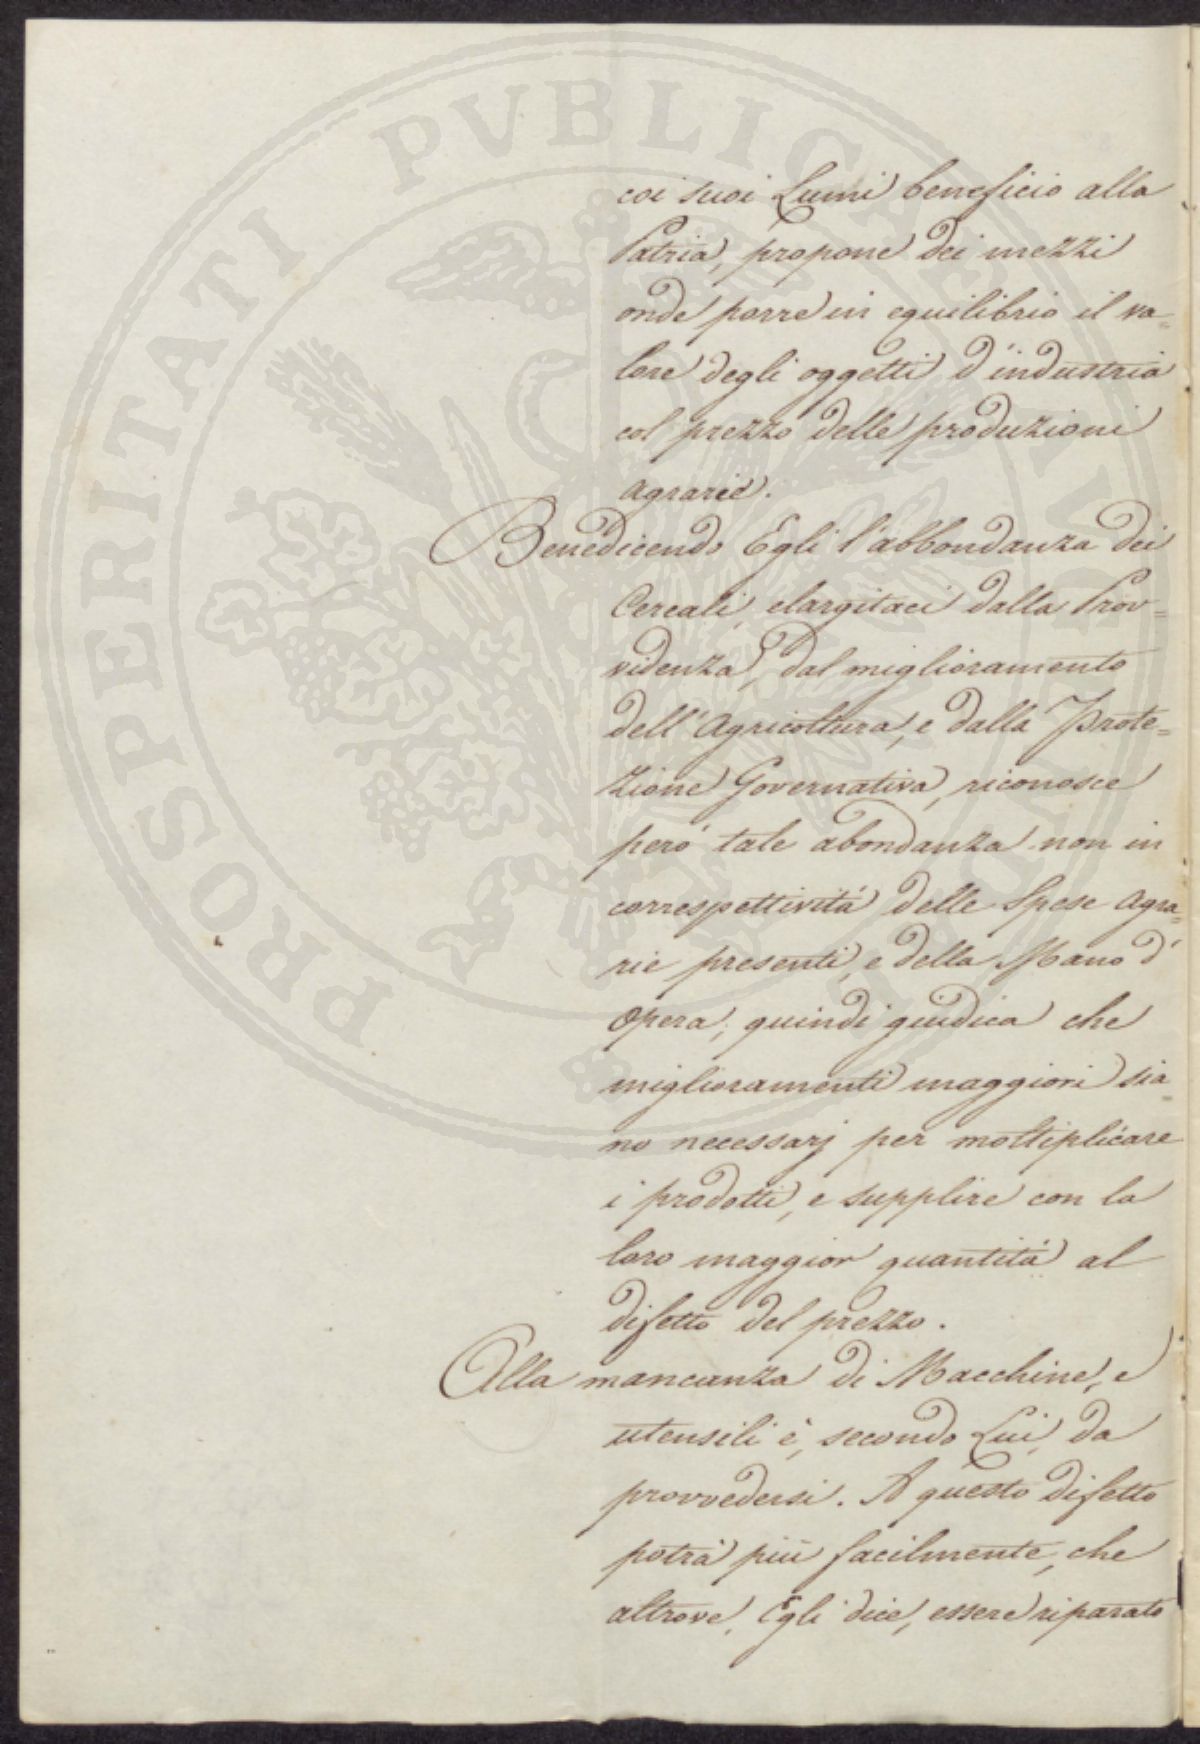 coi suoi Lumi beneficio alla
Patria, propone dei mezzi
onde porre in equilibrio il va-
lore degli oggetti d'industria
col prezzo delle produzioni
agrarie.
Benedicendo Egli l'abbondanza dei
Cereali, elargitaci dalla Prov=
videnza, dal miglioramento
dell'Agricoltura, e dalla Prote=
zione Governativa, riconosce
peró tale abondanza non in
correspettivitá delle Spese Agra=
rie presenti, e della Mano d'
opera; quindi giudica che
miglioramenti maggiori sia
no necessarj per moltiplicare
i prodotti, e supplire con la
loro maggior quantitá al
difetto del prezzo.
Alla mancanza di Macchine, e
utensili é, secondo Lui, da
provvedersi. A questo difetto
potrá piú facilmente, che
altrove, Egli dice, essere riparato
PROSPERITATI PVBLICAE AVGENDAE